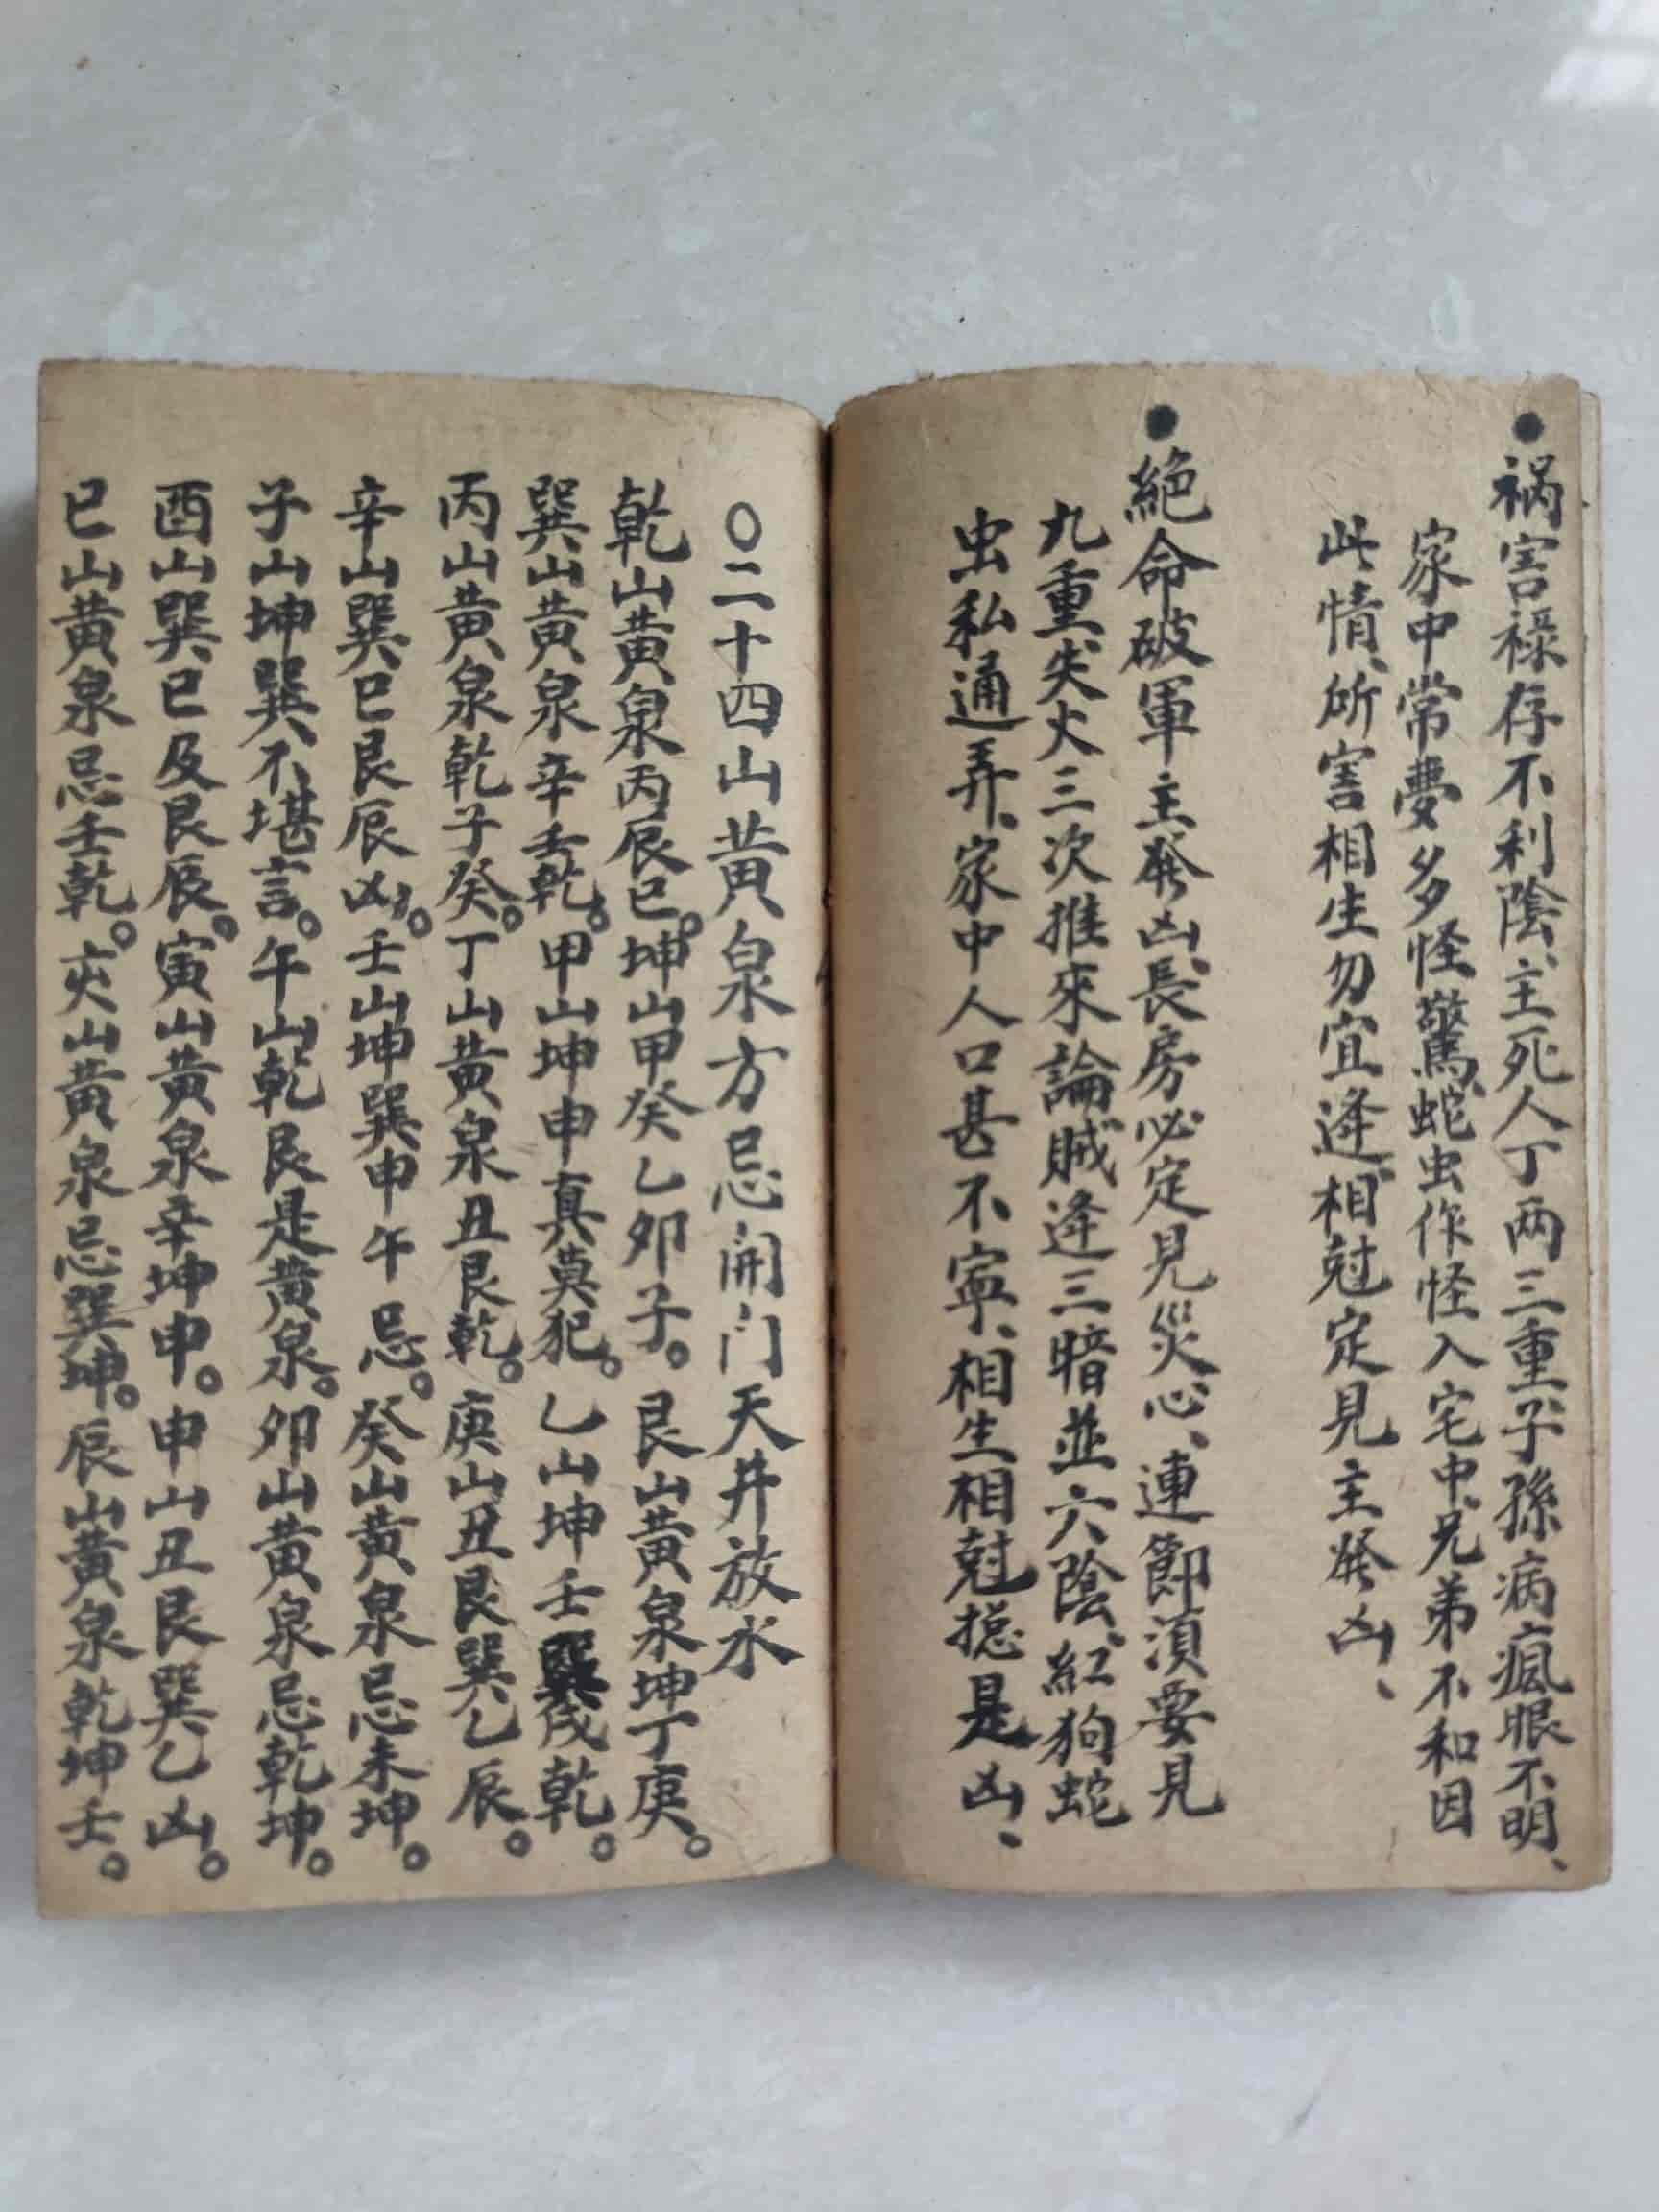 ●祸害祿存不利陰、主死人丁两三重、子孫病瘋眼不明、
家中常夢多怪驚、蛇虫作怪入宅中、兄弟不和因
此情、所害相生勿宜逢、相尅定見主發凶、
●絕命破軍主發凶、長房必定見災心、連節須要見
九重、失火三次推來論、賊逢三暗並六陰、紅狗蛇
虫私通弄、家中人口甚不寧、相生相尅摠是凶、
○二十四山黃泉方忌開门天井放水
乾山黃泉丙辰巳。坤山甲癸乙卯子。艮山黃泉坤丁庚。
巽山黃泉辛壬乾。甲山坤申真莫犯。乙山坤壬巽戌乾。
丙山黃泉乾子癸。丁山黃泉丑艮乾。庚山丑艮巽乙辰。
辛山巽巳艮辰凶。壬山坤巽申午忌。癸山黃泉忌未坤。
子山坤巽不堪言。午山乾艮是黃泉。卯山黃泉忌乾坤。
酉山巽巳及艮辰。寅山黃泉辛坤申。申山丑艮巽乙凶。
巳山黃泉忌壬乾。亥山黃泉忌巽坤。辰山黃泉乾坤壬。